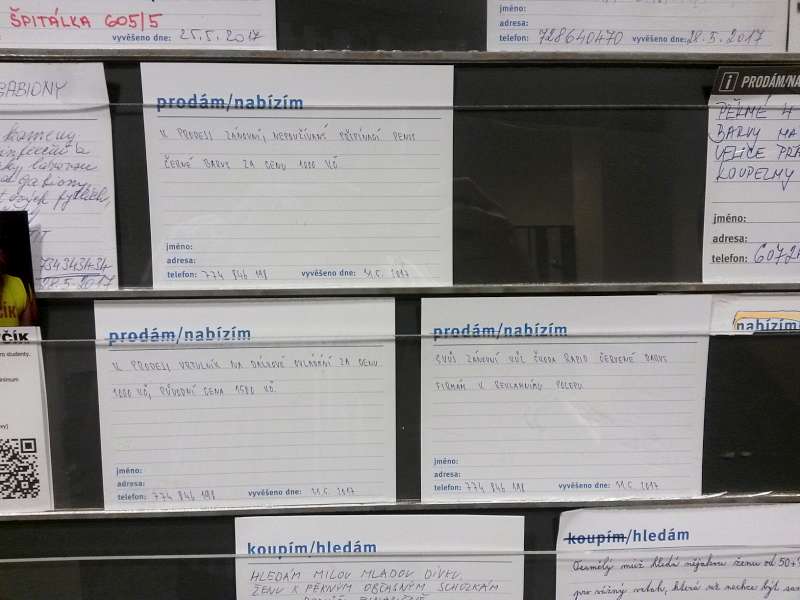 ŠPITÁLKA 605/5
vyvěšeno dne: 25.5.2017
jméno:
adresa:
telefon: 728640470 vyvěšeno dne: 28.5.2017
GABIONY
kameny
gabiony,
734343434
28.5.2017
prodám/nabízím
K PRODEJI ZÁNOVNÍ, NEPOUŽÍVANÝ PŘIPÍNACÍ PENIS
ČERNÉ BARVY ZA CENU 1000 KČ
jméno:
adresa:
telefon: 774 846 198 vyvěšeno dne: 31.5.2017
PRODÁM/NA
PĚKNÉ 4
BARVY MA
VELICE PRA
KOUPELNY
jméno:
adresa:
telefon: 6072
ČÍK
ro studenty.
prodám/nabízím
K PRODEJI VRTULNÍK NA DÁLKOVÉ OVLÁDÁNÍ ZA CENU
1000 KČ, PŮVODNÍ CENA 1500 KČ.
jméno:
adresa:
telefon: 774 846 198 vyvěšeno dne: 31.5.2017
prodám/nabízím
SVŮJ ZÁNOVNÍ VŮZ ŠKODA RAPID ČERVENÉ BARVY
FIRMÁM K REKLAMNÍMU POLEPU
jméno:
adresa:
telefon: 774 846 198 vyvěšeno dne: 31.5.2017
nabízím
koupím/hledám
HLEDÁM MILOU MLADOU DÍVKU
ŽENU K PĚKNÝM OBČASNÝM SCHŮZKÁM
koupím/hledám
Osamělý muž hledá nějakou ženu od 50+
pro vážný vztah, která už nechce být sam